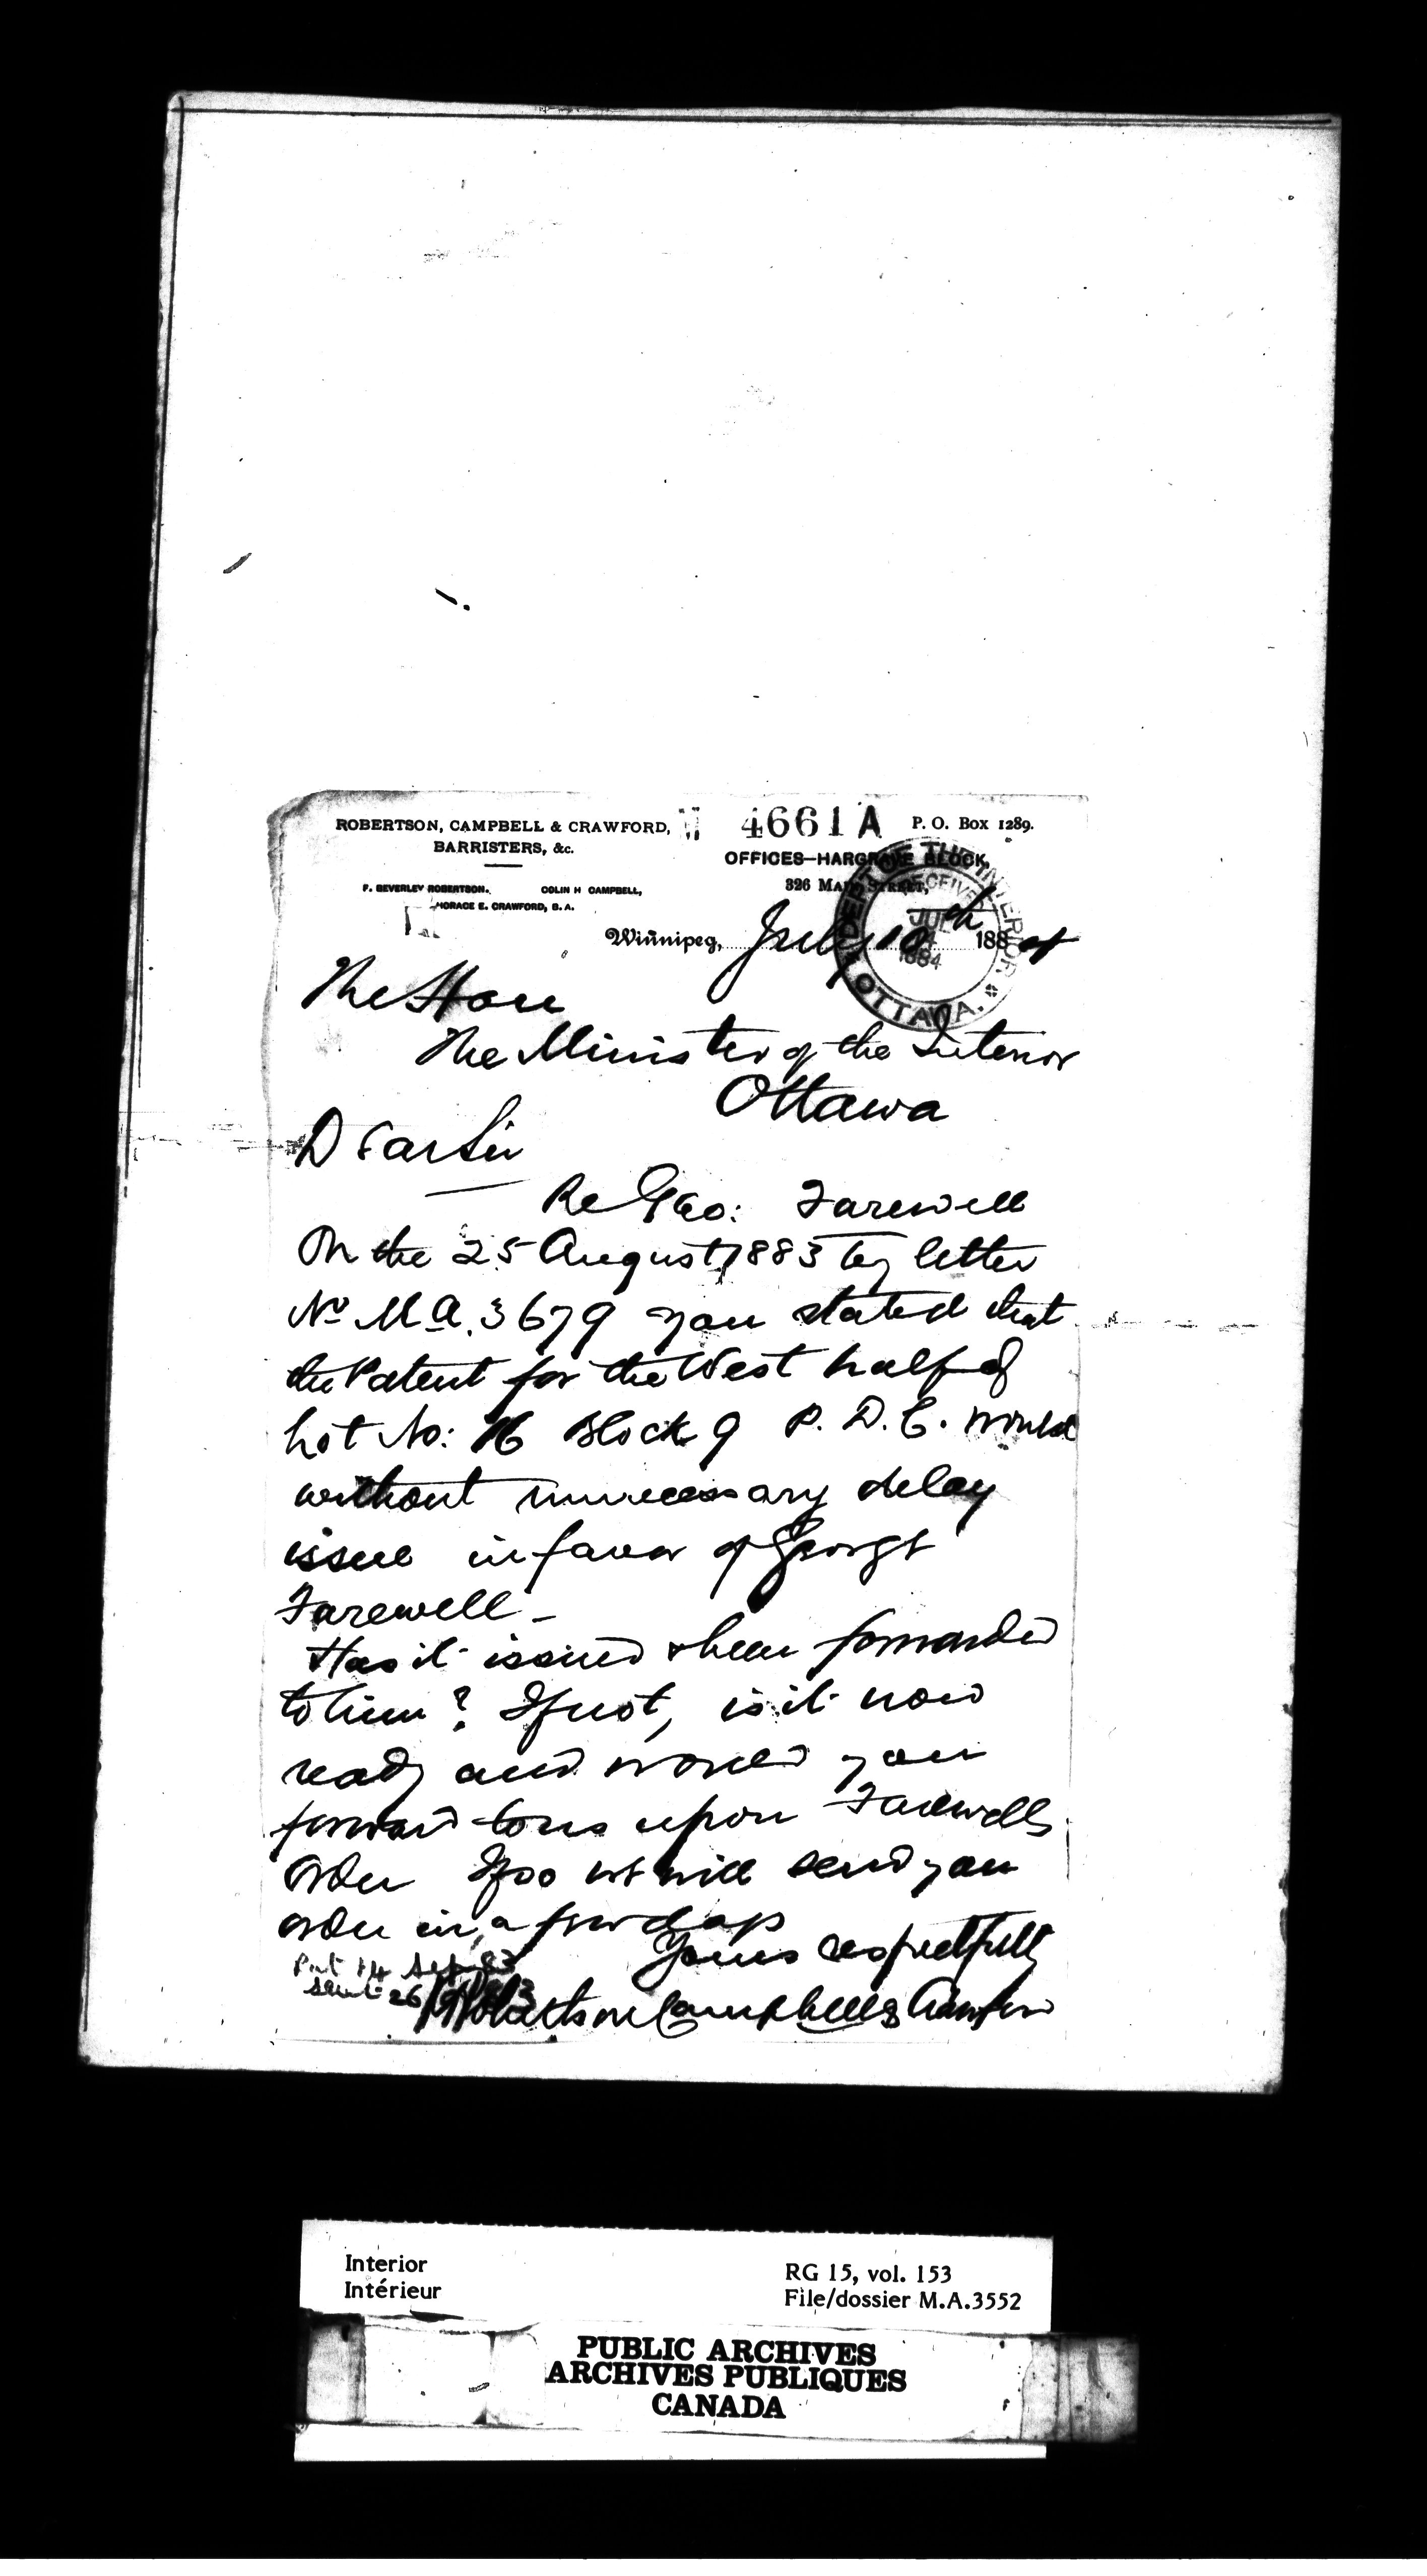 ROBERTSON, CAMPBELL & CRAWFORD,
BARRISTERS, &c.
F. BEVERLEY ROBERTSON. COLIN H CAMPBELL,
HORACE E. CRAWFORD, B. A.
4661 A P. O. Box 1289.
OFFICES—HARGRAVE BLOCK,
326 MAIN STREET,
DEPT OF THE INTERIOR
RECEIVED
JUL
14
1884
OTTAWA.
Winnipeg, July 10th 1884
The Hon
The Minister of the Interior
Ottawa
Dear Sir
Re Geo: Farewell
On the 25 August 1883 by letter
No M.A. 3679 you stated that
the Patent for the West half of
Lot No: 16 Block 9 P. D. C. would
without unnecessary delay
issue in favor of George
Farewell –
Has it issued & been forwarded
to him? If not, is it now
ready and would you
forward to us upon Farewells
order If so we will send you
order in a few days
Yours respectfully
Robertson Campbell & Crawford
Pat 14 Sep 83
sent 26
Interior
Intérieur
RG 15, vol. 153
File/dossier M.A.3552
PUBLIC ARCHIVES
ARCHIVES PUBLIQUES
CANADA